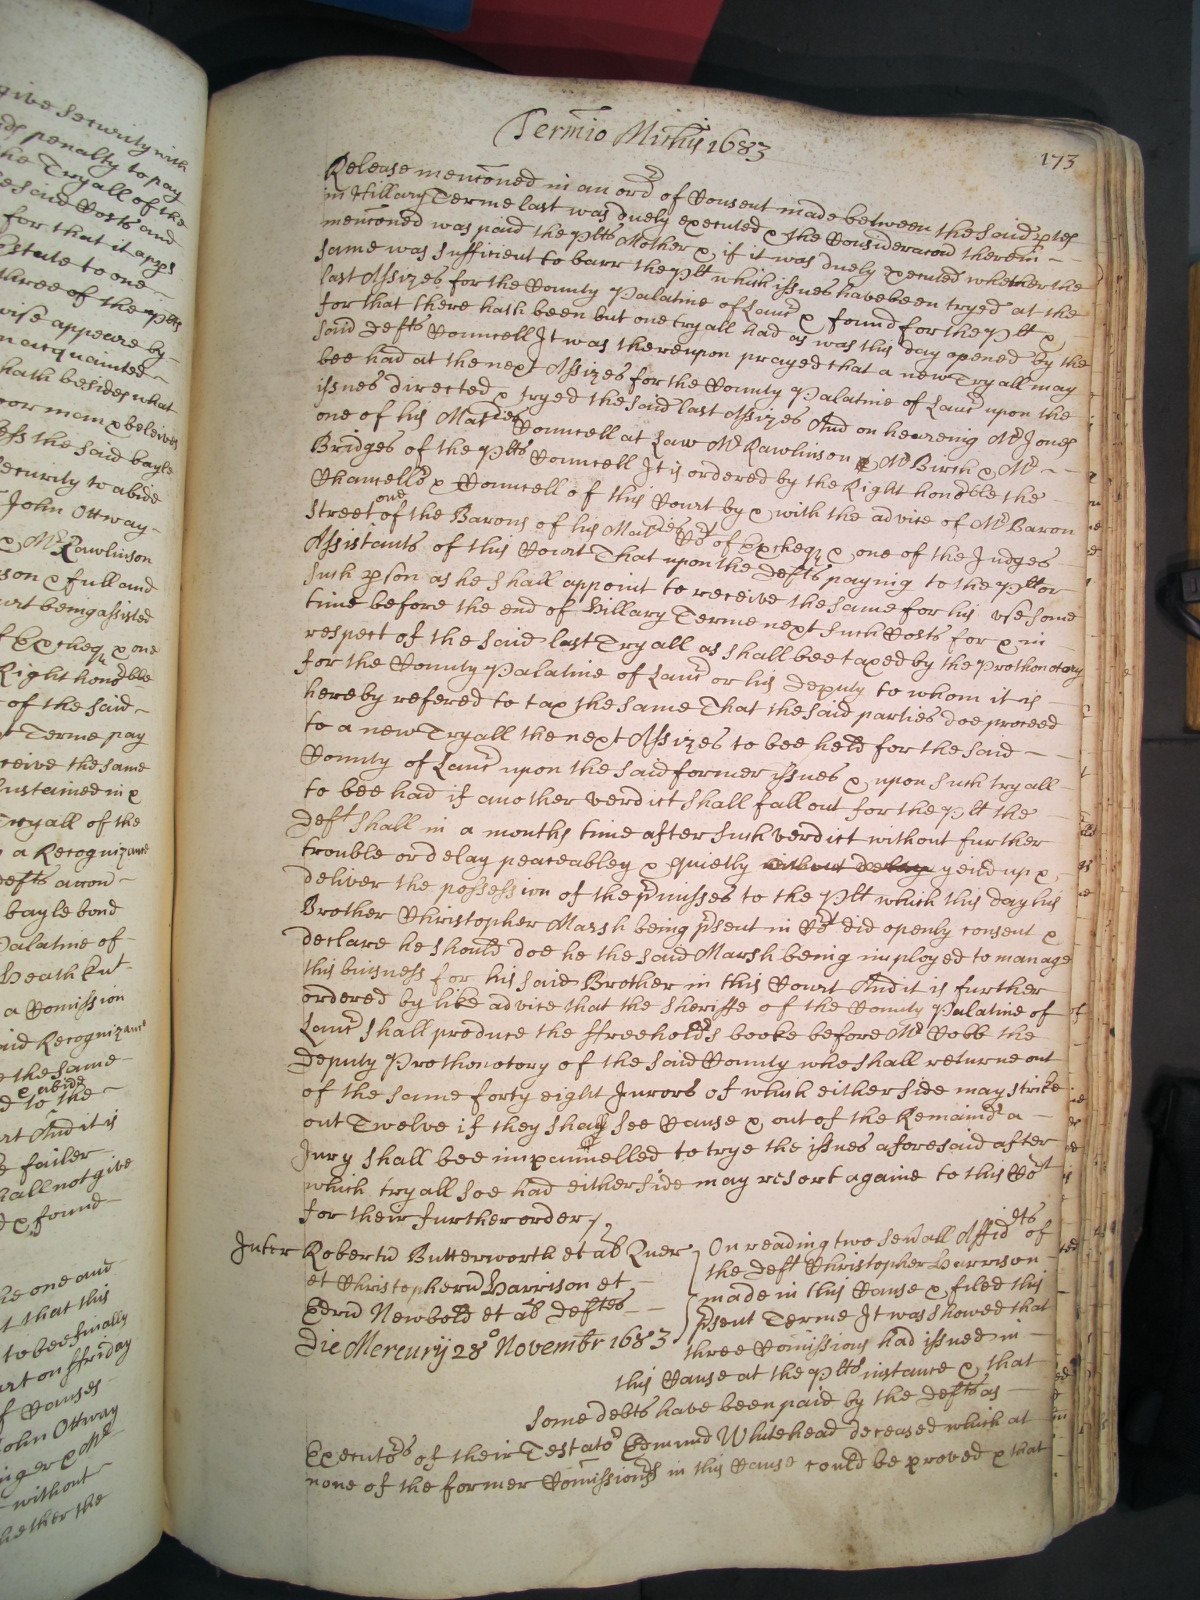 give security with
penalty to pay
the Tryall of the
said Costs and
for that it apps
Estate to one
three of the plts
wise appeare by
acquainted
hath besides what
poor man & beleives
the said bayle
security to abide
John Ottway
& Mr Rawlinson
& full and
Court being assisted
of Excheqr & one
Right honoble
of the said
Terme pay
receive the same
sustained in &
Tryall of the
a Recognizance
defts accon
bayle bond
Palatine of
Heath Knt
a Comission
said Recognizance
the same
& abide
to the
And it is
failer
shall not give
& found
the one and
that this
to bee finally
Court on ffriday
of Causes
John Ottway
& Mr
without
whether the
Termio Michis 1683
173
Release menconed in an ordr of Consent made between the said ptes
in Hillary Terme last was duely executed & the Consideracon therein
menconed was paid the plts Mother & if it was duely executed whether the
same was sufficient to barr the plt which issues have been tryed at the
last Assizes for the County Palatine of Lancr & found for the plt &
for that there hath been but one tryall had as was this day opened by the
said defts Councell It was thereupon prayed that a new Tryall may
bee had at the next Assizes for the County Palatine of Lancr upon the
issues directed & tryed the said last Assizes And on heareing Mr Jones
one of his Maties Councell at Law Mr Rawlinson & Mr Birch & Mr
Bridges of the plts Councell It is ordered by the Right honoble the
Chancellr & Councell of this Court by & with the advice of Mr Baron
Street one of the Barons of his Maties Cort of Excheqr & one of the Judges
Assistants of this Court That upon the Defts payng to the plt or
such pson as he shall appoint to receive the same for his use some
time before the end of Hillary Terme next such Costs for & in
respect of the said last Tryall as shall bee taxed by the Prothonotary
for the County Palatine of Lancr or his Deputy to whom it is
hereby refered to tax the same That the said parties doe proceed
to a new Tryall the next Assizes to bee held for the said
County of Lancr upon the said former issues & upon such tryall
to bee had if another verdict shall fall out for the plt the
Deft shall in a months time after such verdict without further
trouble or delay peaceabley & quietly without delay yeild up &
deliver the possession of the pmisses to the plt which this day his
Brother Christopher Marsh being psent in Cort did openly consent &
declare he should doe he the said Marsh being imployed to manage
this buisness for his said Brother in this Court And it is further
ordered by like advice that the Sheriffe of the County Palatine of
Lancr shall produce the ffreeholdrs booke before Mr Cobb the
Deputy Prothonotory of the said County who shall returne out
of the same forty eight Jurors of which either side may strike
out Twelve if they shall see Cause & out of the Remaindr a
Jury shall bee impannelled to trye the issues aforesaid after
which tryall soe had either side may resort againe to this Cort
for their further order /
Inter Robertu Butterworth et al Quer
et Christopheru Harrison et
Edru Newbold et al deftes
Die Mercurij 28o Novembr 1683
On reading two sevall Affidts of
the Deft Christopher Harrison
made in this Cause & filed this
psent Terme It was showed that
three Comissions had issued in
this Cause at the plts instance & that
some debts have been paid by the defts as
Executors of their Testator Edmund Whitehead deceased which at
none of the former Comissions in this Cause could be proved & that